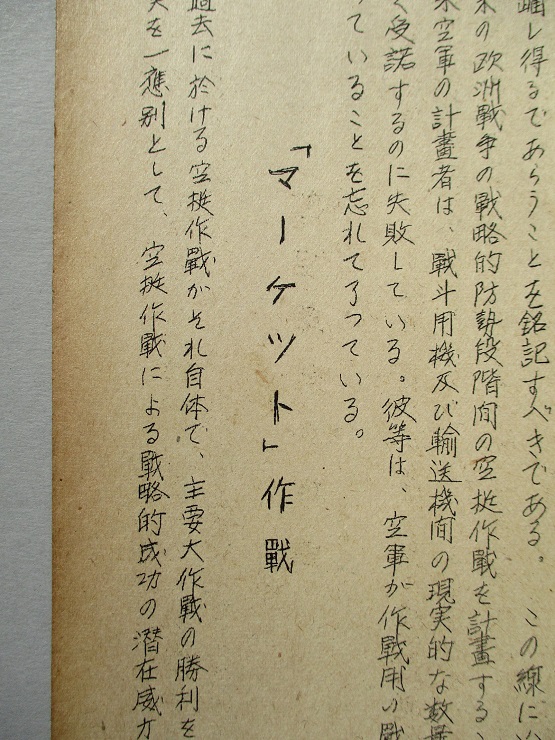 踊し得るであらうことを銘記すべきである。 この線に
米の欧洲戦争の戦略的防勢段階間の空挺作戦を計畫する
米空軍の計畫者は、戰斗用機及び輸送機間の現実的な数量
く受諾するのに失敗している。彼等は、空軍が作戰用い戰
っていることを忘れて了つている。
「マーケット」作戰
過去に於ける空挺作戰がそれ自体で、主要大作戰の勝利を
実を一應別として、空挺作戰による戰略的成功の潜在威力